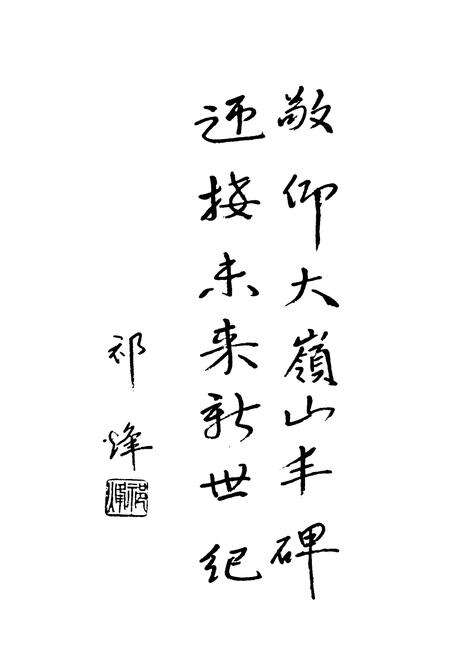 敬仰大嶺山丰碑
迎接未来新世纪
祁烽
祁烽